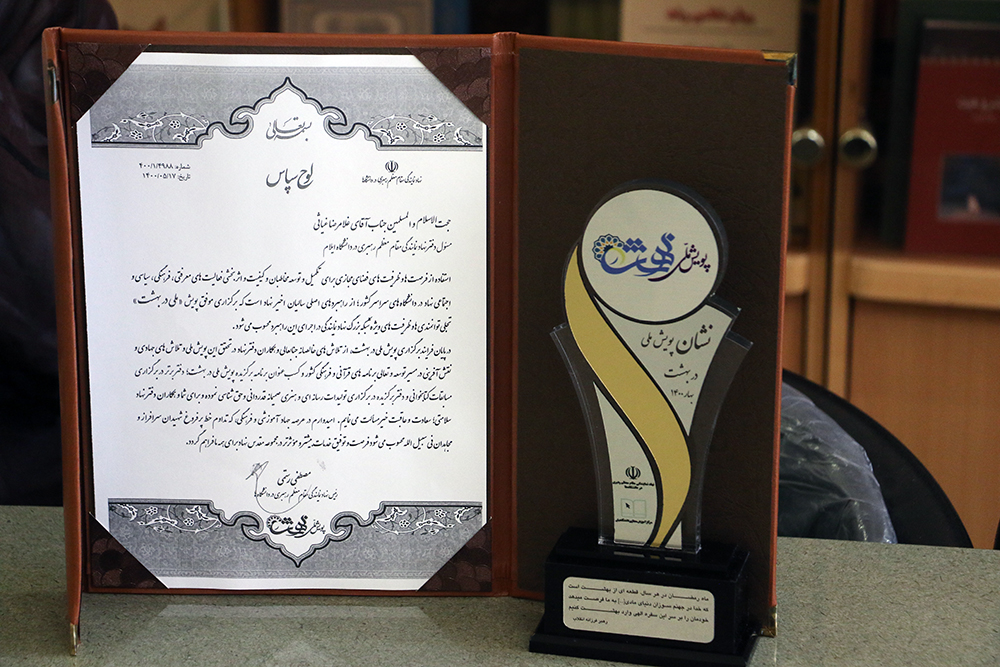 بسمه تعالی
شماره: ۴۰۰/۱/۳۹۸۸
تاریخ: ۱۴۰۰/۰۵/۱۷
نهاد نمایندگی مقام معظم رهبری در دانشگاه‌ها
لوح سپاس
حجت الاسلام و المسلمین جناب آقای غلامرضا غیاثی
مسئول دفتر نهاد نمایندگی مقام معظم رهبری در دانشگاه ایلام
استفاده از فرصت ها و ظرفیت های فضای مجازی برای تکمیل و توسعه مخاطبان و کیفیت و اثربخشی فعالیت های معرفتی، فرهنگی، سیاسی و
اجتماعی نهاد در دانشگاه های سراسر کشور؛ از راهبردهای اصلی سالیان اخیر نهاد است که برگزاری موفق پویش «ملی در بهشت»
تجلی توانمندی ها و ظرفیت های ویژه شبکه بزرگ نهاد نمایندگی در اجرای این راهبرد محسوب می شود.
در پایان فرایند برگزاری پویش ملی در بهشت، از تلاش های خالصانه جنابعالی و همکاران دفتر نهاد در تحقق این پویش ملی و تلاش های جهادی و
نقش آفرینی در مسیر توسعه و تعالی برنامه های قرآنی و فرهنگی کشور و کسب عنوان برنامه برگزیده پویش ملی در بهشت؛ دفتر برتر در برگزاری
مسابقات کتابخوانی و دفتر برگزیده در برگزاری تولیدات رسانه ای و هنری صمیمانه قدردانی و حق شناسی نموده و برای شما و همکاران دفتر نهاد
سلامتی؛ سعادت و عاقبت خیر مسالت می نمایم. امیدوارم در عرصه جهاد آموزشی و فرهنگی، که تداوم خط پر فروغ شهیدان سرافراز و
مجاهدان فی سبیل الله محسوب می شود فرصت و توفیق خدمات بیشتر و موثرتر در مجموعه مقدس نهاد برای همه ما فراهم گردد.
مصطفی رستمی
رئیس نهاد نمایندگی مقام معظم رهبری در دانشگاه ها
پویش ملی در بهشت
پویش ملی در بهشت
نشان پویش ملی
در بهشت
بهار ۱۴۰۰
نهاد نمایندگی مقام معظم رهبری
در دانشگاه‌ها
ماه رمضان در هر سال، قطعه ای از بهشت است
که خدا در جهنم سوزان دنیای مادی[...] به ما فرصت میدهد
خودمان را بر سر این سفره الهی وارد بهشت کنیم
رهبر فرزانه انقلاب